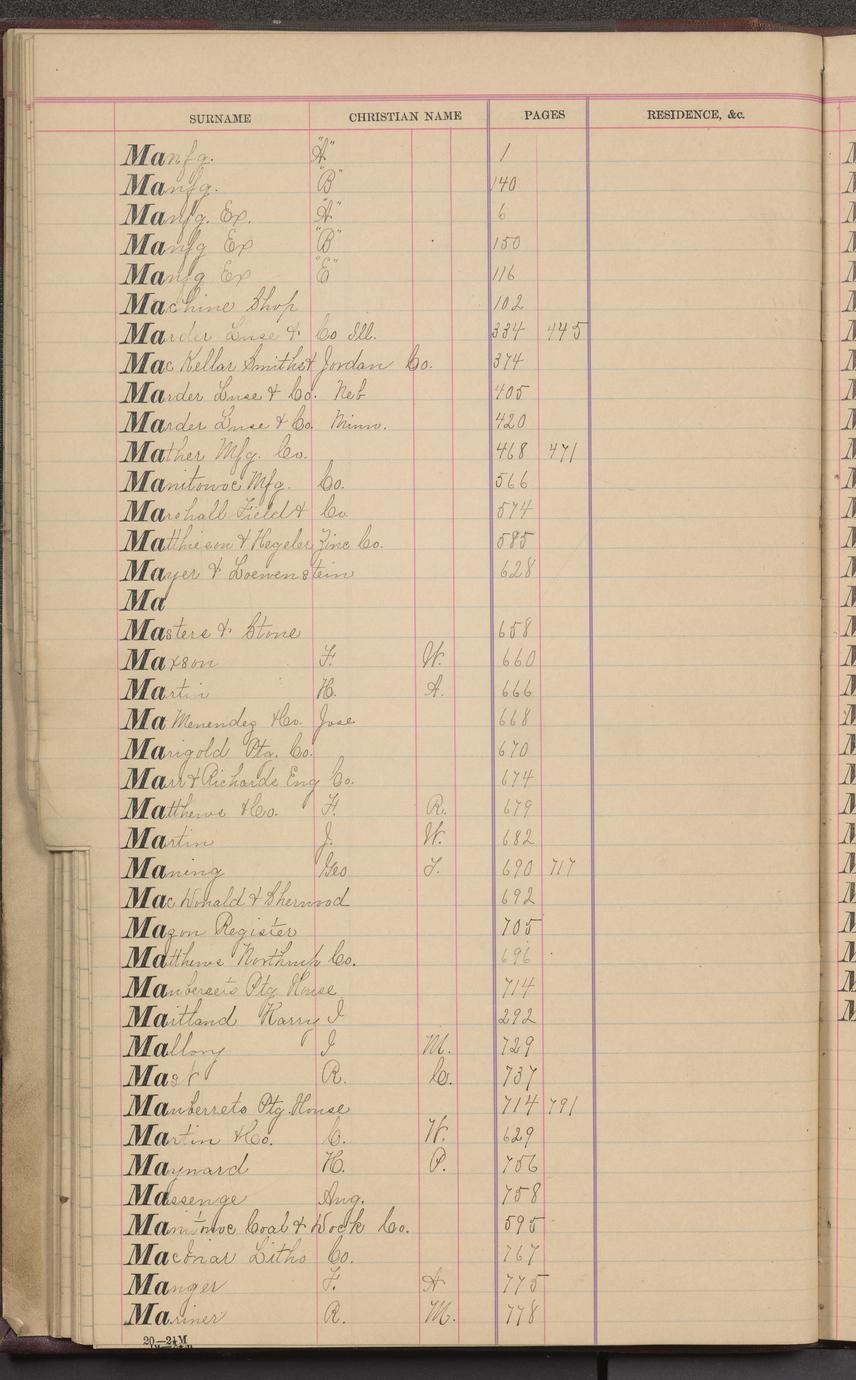 SURNAME CHRISTIAN NAME PAGES RESIDENCE, &c.
Manfg. "A" 1
Manfg. "B" 140
Manfg. Ex. "A" 6
Manfg Ex "B" 150
Manfg Ex "E" 116
Machine Shop 102
Marder Luse & Co Ill. 334 445
Mac Kellar Smiths & Jordan Co. 374
Marder Luse & Co. Neb 405
Marder Luse & Co. Minn. 420
Mather Mfg. Co. 468 471
Manitowoc Mfg. Co. 566
Marshall Field & Co 574
Matthieson & Hegeler Zinc Co. 585
Mayer & Loewenstein 628
Ma
Masters & Stone 658
Maxson F. W. 660
Martin H. A. 666
Ma Menendez & Co. Jose 668
Marigold Ptg. Co. 670
Marr & Richards Eng Co. 674
Matthews & Co. F. R. 679
Martin J. W. 682
Maning Geo T. 690 717
Mac Donald & Sherwood 692
Mazon Register 705
Matthews Northrup Co. 696
Ptg House 714
Maitland Harry I 292
Mallory I M. 729
Mast R. C. 737
Ptg. House 714 791
Martin & Co. C. W. 629
Maynard H. P. 756
Massenge Aug. 758
Manitowoc Coal & Dock Co. 595
Litho Co. 767
Manger F. A 775
Mariner R. M. 778
20—24M